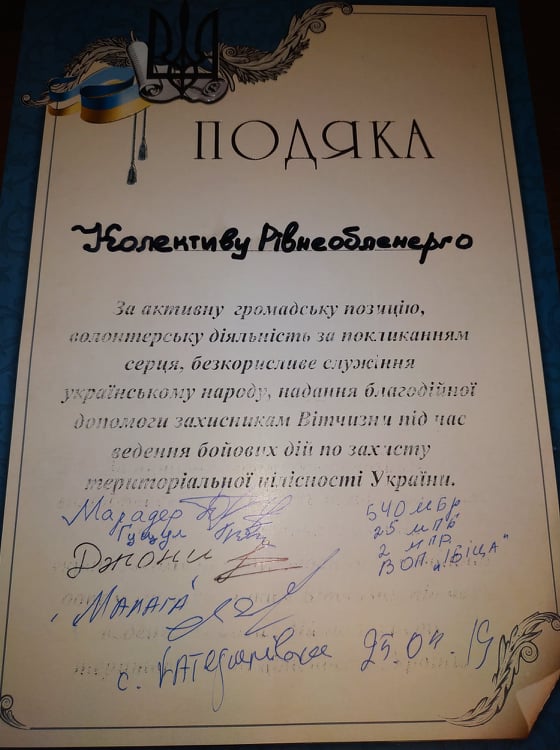 ПОДЯКА
Колективу Рівнеобленерго
За активну громадську позицію,
волонтерську діяльність за покликанням
серця, безкорисливе служіння
українському народу, надання благодійної
допомоги захисникам Вітчизни під час
ведення бойових дій по захисту
територіальної цілісності України.
Марадер
540 МБр
Гуцул
25 МПБ
Джони
2 МПР
ВОП "БІЦА"
"МАПАГА"
с. 25.04.19